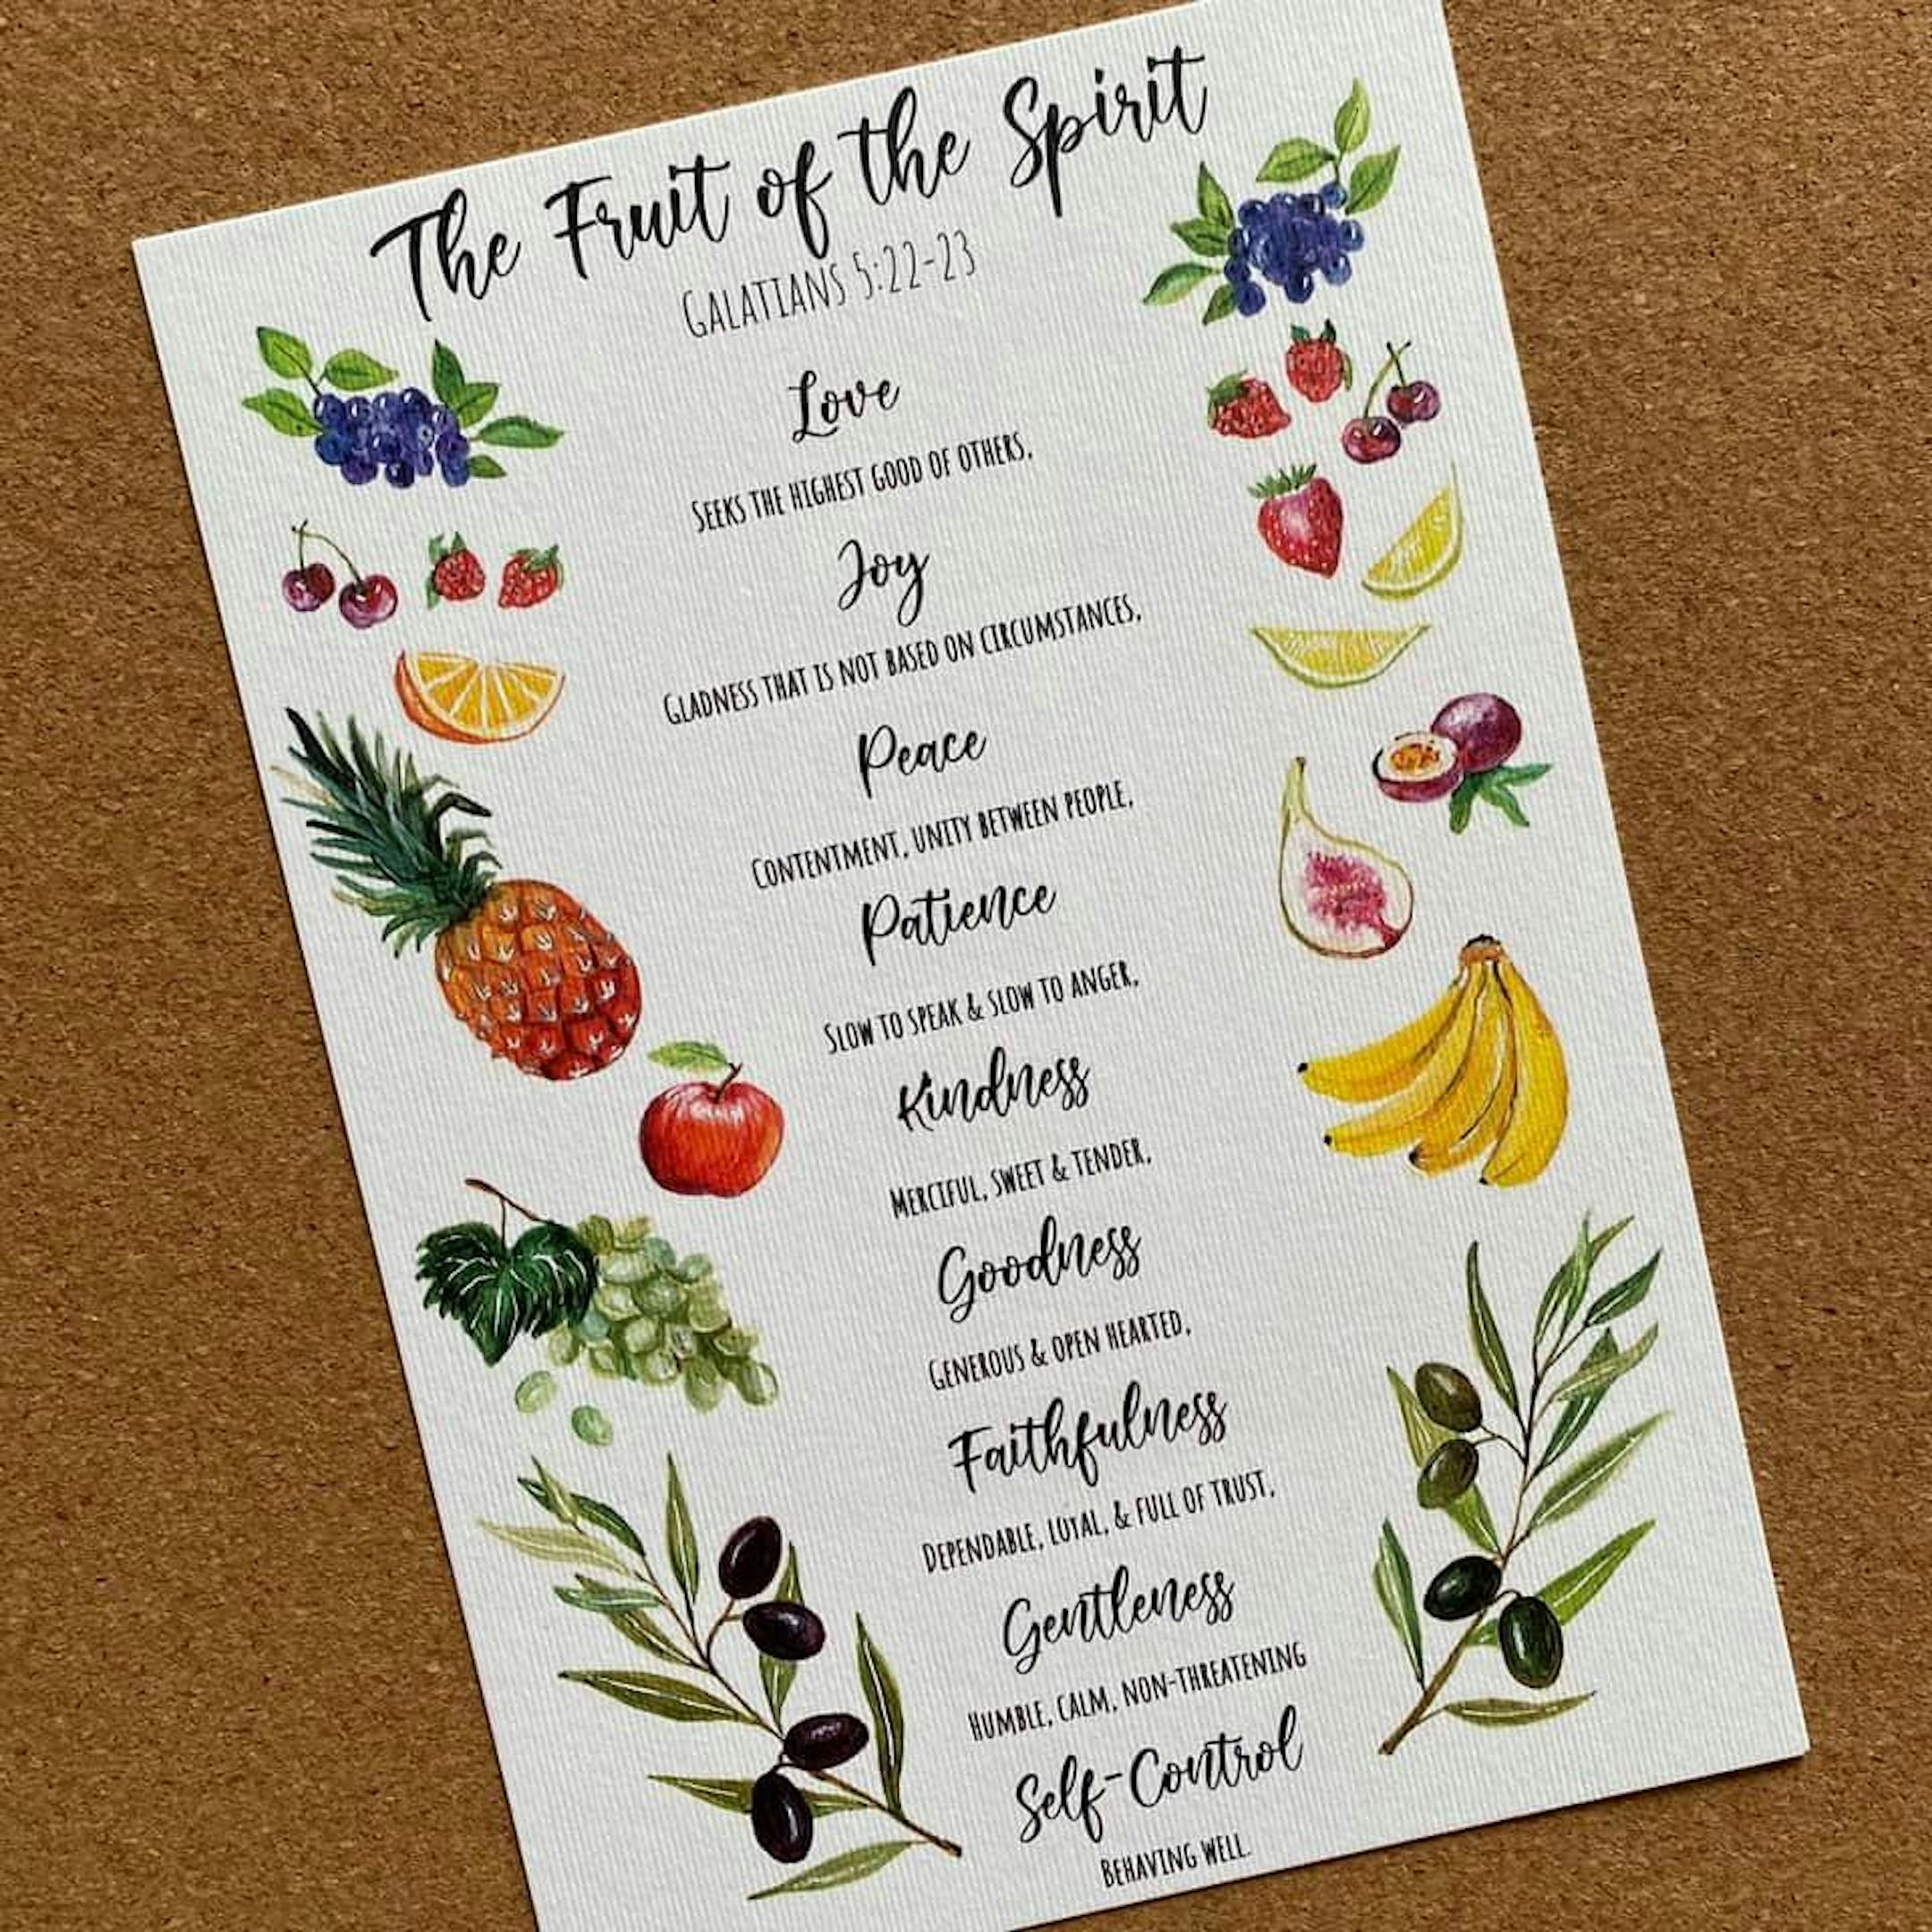 The Fruit of the Spirit
GALATIANS 5:22-23
Love
SEEKS THE HIGHEST GOOD OF OTHERS,
Joy
GLADNESS THAT IS NOT BASED ON CIRCUMSTANCES,
Peace
CONTENTMENT, UNITY BETWEEN PEOPLE,
Patience
SLOW TO SPEAK & SLOW TO ANGER,
Kindness
MERCIFUL, SWEET & TENDER,
Goodness
GENEROUS & OPEN HEARTED,
Faithfulness
DEPENDABLE, LOYAL, & FULL OF TRUST,
Gentleness
HUMBLE, CALM, NON-THREATENING
Self-Control
BEHAVING WELL.